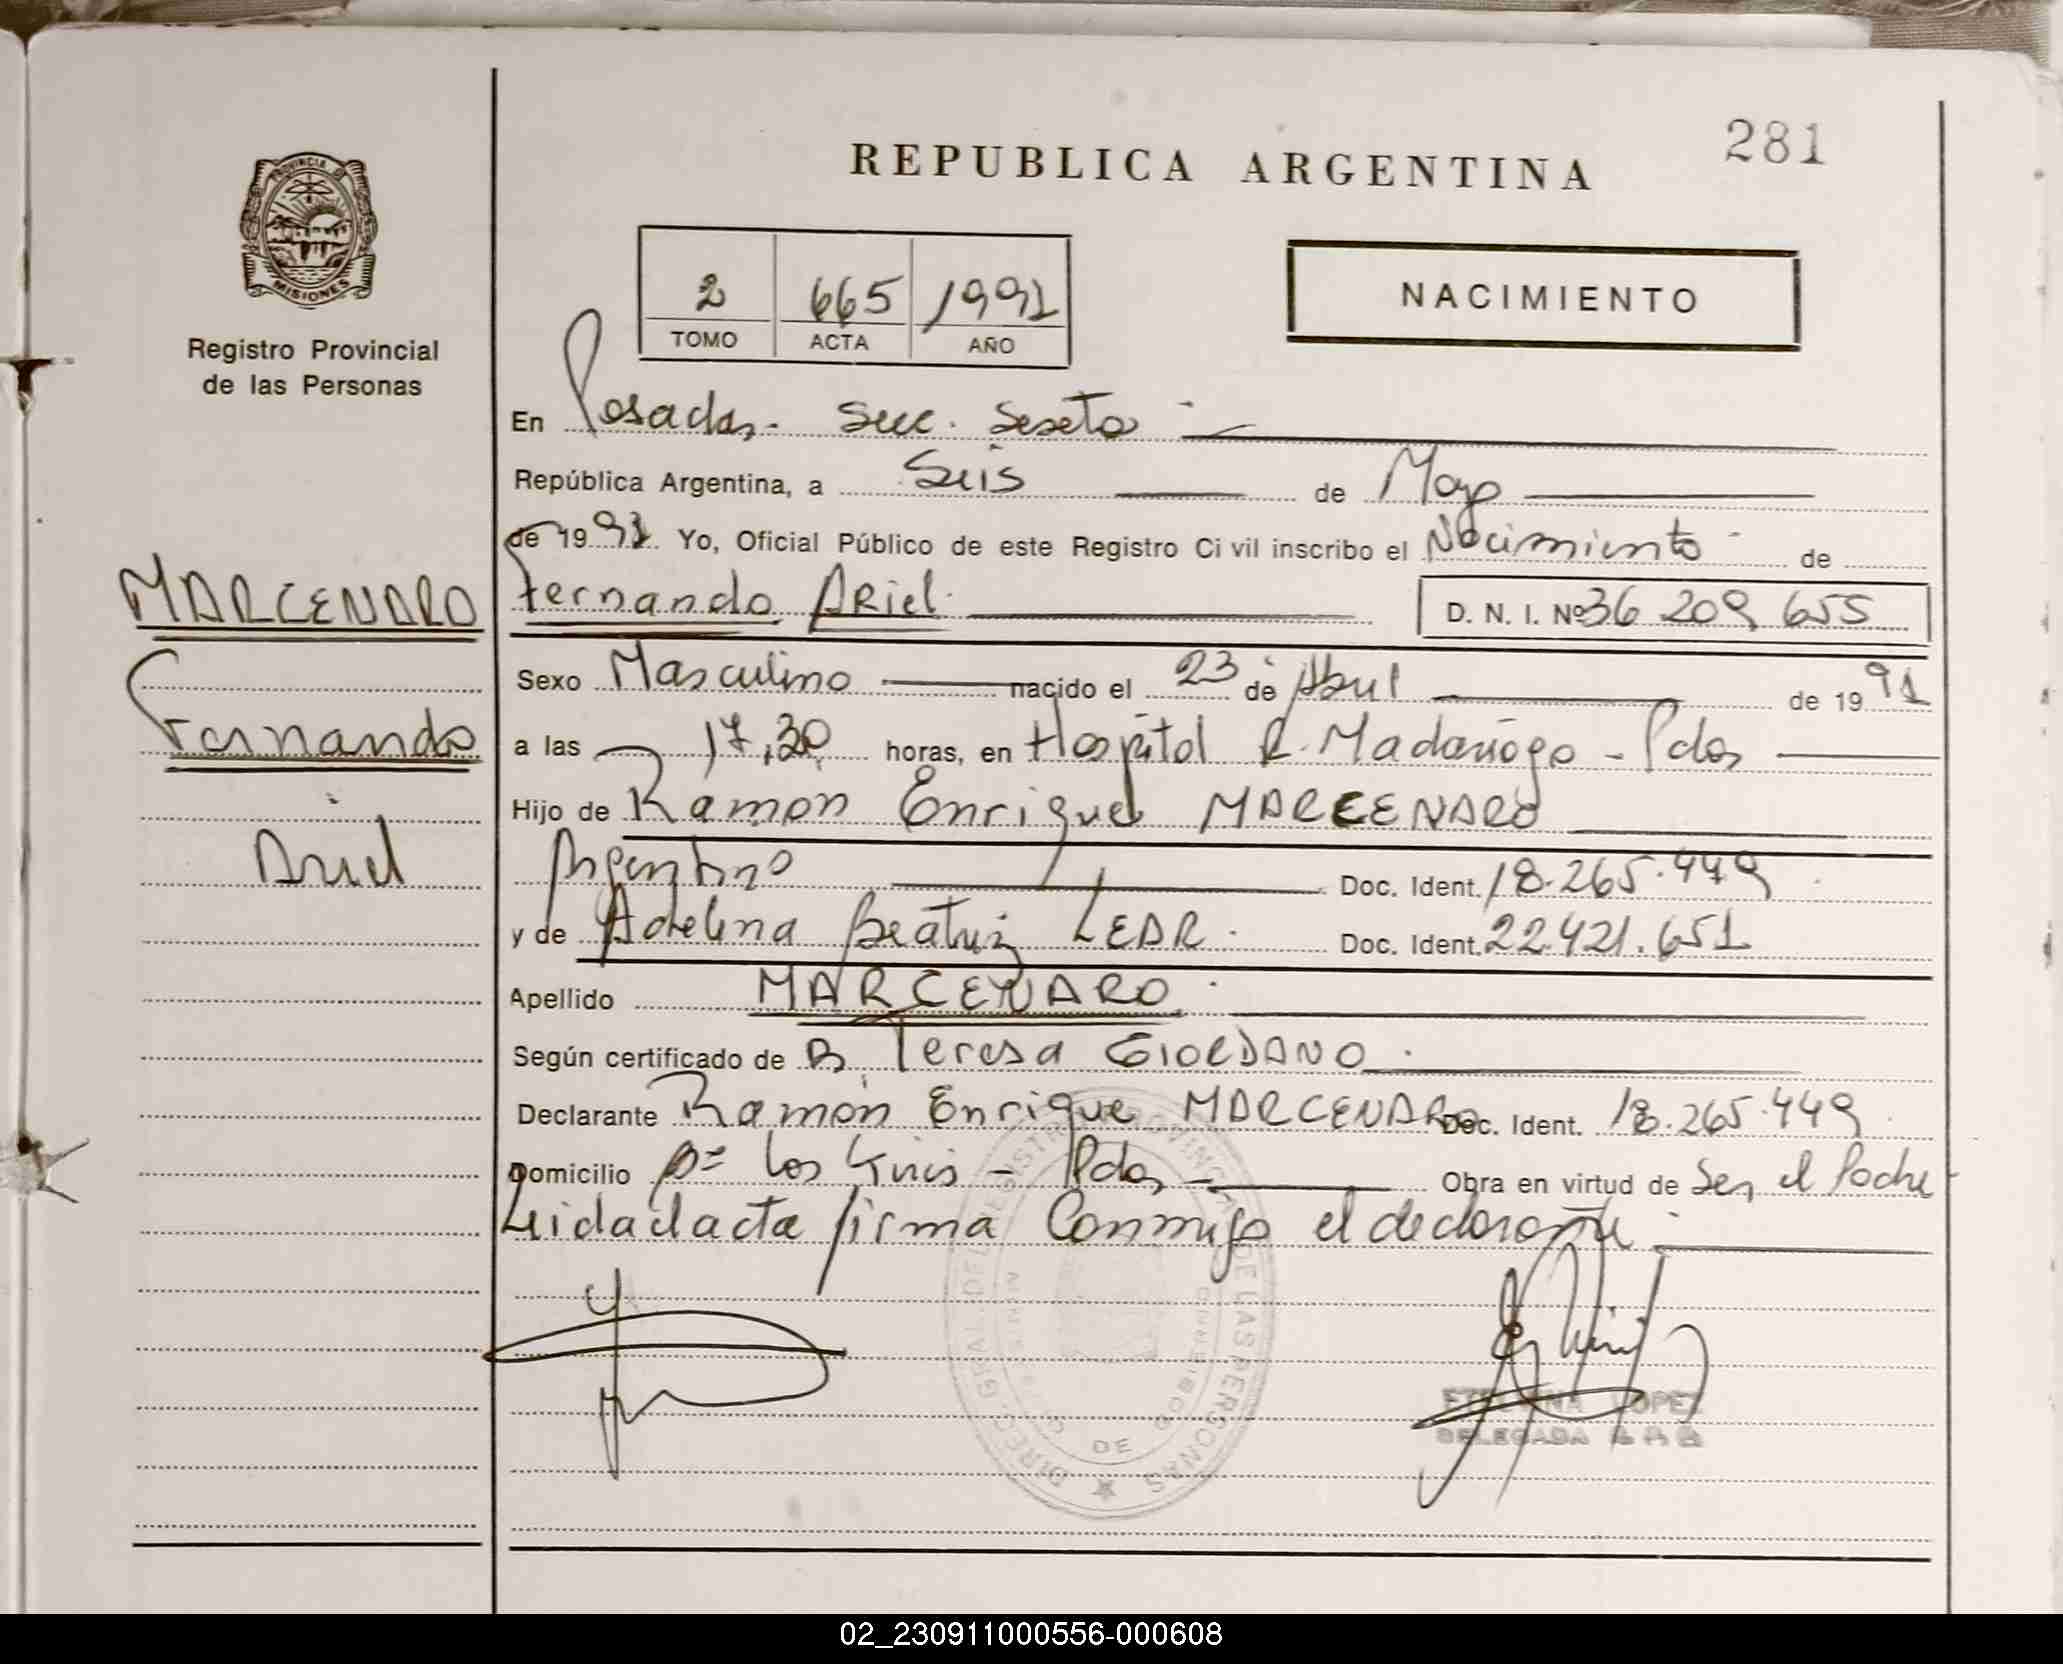 281
REPUBLICA ARGENTINA
PROVINCIA DE
MISIONES
Registro Provincial
de las Personas
2 665 1991
TOMO ACTA AÑO
NACIMIENTO
En Posadas. Secc. Sexta
República Argentina, a Seis de Mayo
de 1991 Yo, Oficial Público de este Registro Civil inscribo el Nacimiento de
MARCENARO
Fernando
Ariel
Fernando Ariel D. N. I. Nº 36 209 655
Sexo Masculino nacido el 23 de Abril de 1991
a las 17,30 horas, en Hospital R. Madariaga - Pdas
Hijo de Ramon Enrique MARCENARO
Argentino Doc. Ident. 18.265.449
y de Adelina Beatriz LEAR. Doc. Ident. 22.421.651
Apellido MARCENARO
Según certificado de Teresa GIORDANO.
Declarante Ramon Enrique MARCENARO Doc. Ident. 18.265.449
Domicilio Bº Los - Pdas Obra en virtud de Ser el Padre
Leida el acta firma Conmigo el declarante
DIREC. GRAL. DEL REGISTRO PROVINCIAL DE LAS PERSONAS
DE GOBIERNO
LOPEZ
DELEGADA
02_230911000556-000608